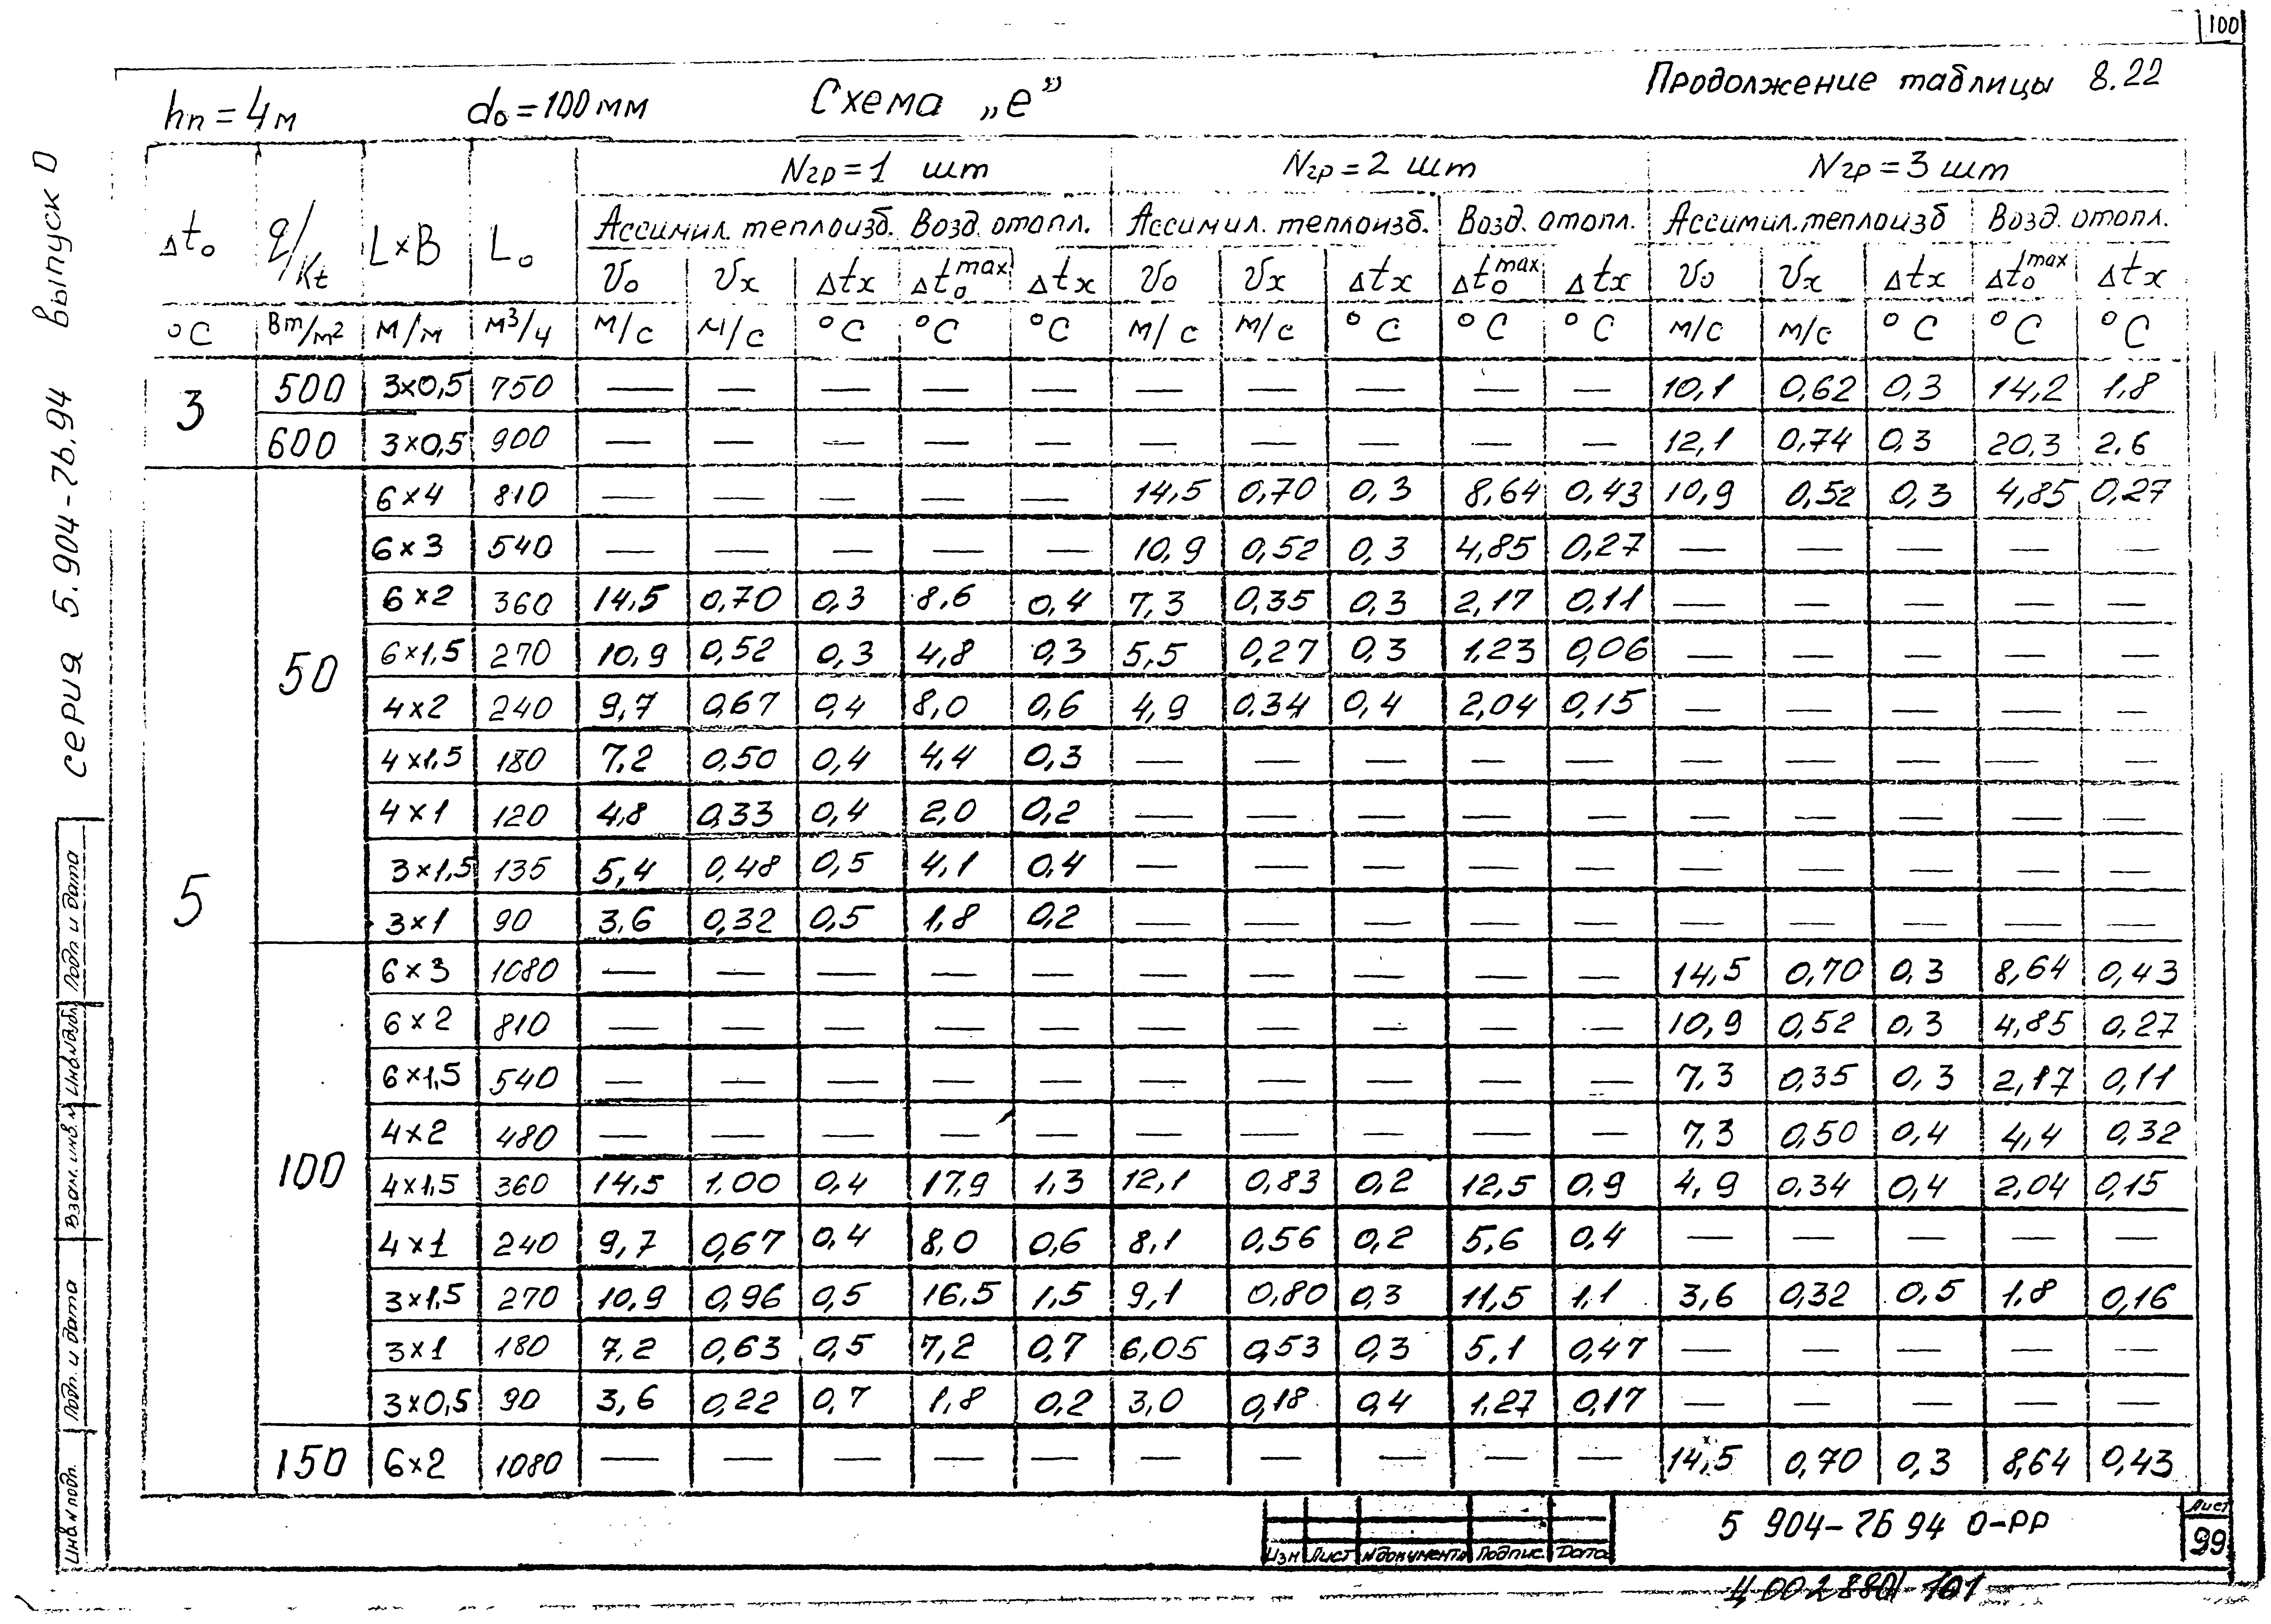 100
hп = 4м d₀ = 100 мм Схема „е” Продолжение таблицы 8.22
Δt₀ q/Kt L×B L₀ Nгр = 1 шт Nгр = 2 шт Nгр = 3 шт
Ассимил. теплоизб. Возд. отопл. Ассимил. теплоизб. Возд. отопл. Ассимил. теплоизб Возд. отопл.
V₀ Vx Δtx Δt₀max Δtx V₀ Vx Δtx Δt₀max Δtx V₀ Vx Δtx Δt₀max Δtx
°C Вт/м² м/м м³/ч м/с м/с °C °C °C м/с м/с °C °C °C м/с м/с °C °C °C
3 500 3×0,5 750 — — — — — — — — — — 10,1 0,62 0,3 14,2 1,8
600 3×0,5 900 — — — — — — — — — — 12,1 0,74 0,3 20,3 2,6
5 50 6×4 810 — — — — — 14,5 0,70 0,3 8,64 0,43 10,9 0,52 0,3 4,85 0,27
6×3 540 — — — — — 10,9 0,52 0,3 4,85 0,27 — — — — —
6×2 360 14,5 0,70 0,3 8,6 0,4 7,3 0,35 0,3 2,17 0,11 — — — — —
6×1,5 270 10,9 0,52 0,3 4,8 0,3 5,5 0,27 0,3 1,23 0,06 — — — — —
4×2 240 9,7 0,67 0,4 8,0 0,6 4,9 0,34 0,4 2,04 0,15 — — — — —
4×1,5 180 7,2 0,50 0,4 4,4 0,3 — — — — — — — — — —
4×1 120 4,8 0,33 0,4 2,0 0,2 — — — — — — — — — —
3×1,5 135 5,4 0,48 0,5 4,1 0,4 — — — — — — — — — —
3×1 90 3,6 0,32 0,5 1,8 0,2 — — — — — — — — — —
100 6×3 1080 — — — — — — — — — — 14,5 0,70 0,3 8,64 0,43
6×2 810 — — — — — — — — — — 10,9 0,52 0,3 4,85 0,27
6×1,5 540 — — — — — — — — — — 7,3 0,35 0,3 2,17 0,11
4×2 480 — — — — — — — — — — 7,3 0,50 0,4 4,4 0,32
4×1,5 360 14,5 1,00 0,4 17,9 1,3 12,1 0,83 0,2 12,5 0,9 4,9 0,34 0,4 2,04 0,15
4×1 240 9,7 0,67 0,4 8,0 0,6 8,1 0,56 0,2 5,6 0,4 — — — — —
3×1,5 270 10,9 0,96 0,5 16,5 1,5 9,1 0,80 0,3 11,5 1,1 3,6 0,32 0,5 1,8 0,16
3×1 180 7,2 0,63 0,5 7,2 0,7 6,05 0,53 0,3 5,1 0,47 — — — — —
3×0,5 90 3,6 0,22 0,7 1,8 0,2 3,0 0,18 0,4 1,27 0,17 — — — — —
150 6×2 1080 — — — — — — — — — — 14,5 0,70 0,3 8,64 0,43
серия 5.904-7б.94 выпуск 0
Подп и дата
Взам. инв. №
Подп. и дата
Инв. № подп.
Изм Лист № документа Подпис Дата
5 904-7Б 94 0-РР
Лист
99
Ц 00288 01 101